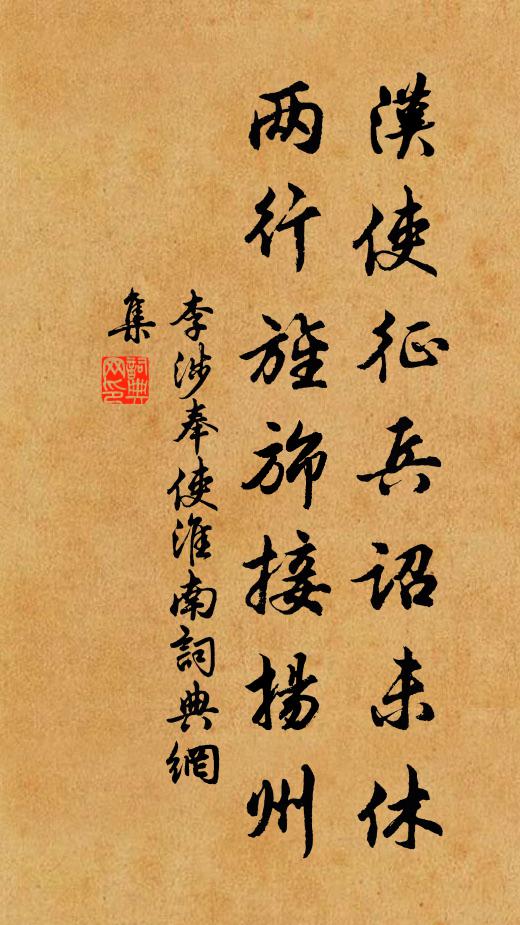 漢使征兵詔未休
两行旌旆接揚州
李涉奉使淮南詞典網
集
詞典
网印